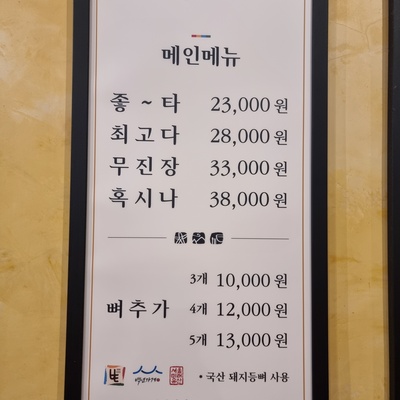 메인메뉴
좋 ~ 타 23,000 원
최고다 28,000 원
무진장 33,000 원
혹시나 38,000 원
3개 10,000 원
뼈추가 4개 12,000 원
5개 13,000 원
• 국산 돼지등뼈 사용